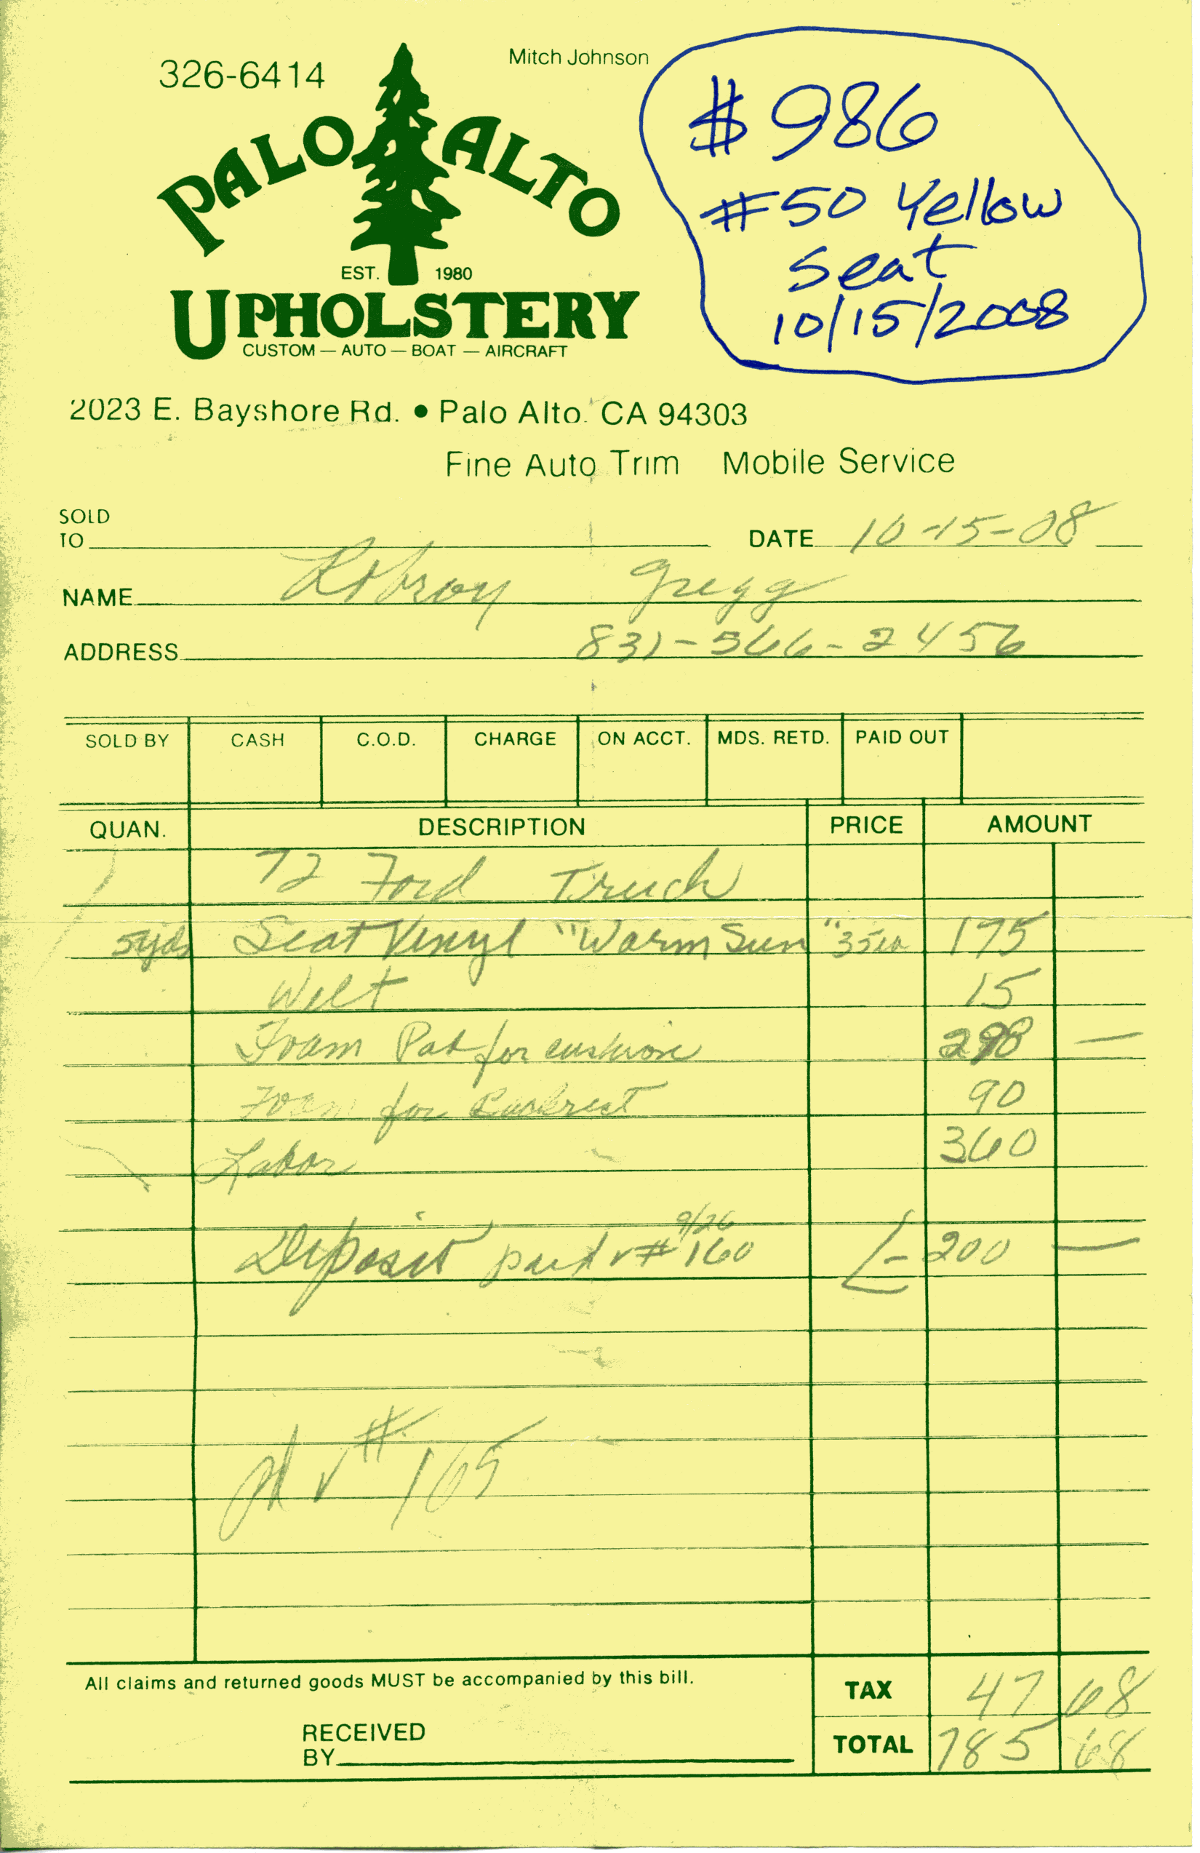 326-6414
Mitch Johnson
PALO ALTO
EST. 1980
UPHOLSTERY
CUSTOM — AUTO — BOAT — AIRCRAFT
$986
#50 Yellow
Seat
10/15/2008
2023 E. Bayshore Rd. • Palo Alto. CA 94303
Fine Auto Trim Mobile Service
SOLD
TO
DATE 10-15-08
NAME Robroy Gregg
ADDRESS 831-566-2456
SOLD BY CASH C.O.D. CHARGE ON ACCT. MDS. RETD. PAID OUT
QUAN. DESCRIPTION PRICE AMOUNT
72 Ford Truck
5yds Seat Vinyl "Warm Sun" 35ea 175
Welt 15
Foam Pad for cushion 298 —
Foam for Backrest 90
Labor 360
9/26
Deposit paid # 160 - 200 —
pd # 165
All claims and returned goods MUST be accompanied by this bill.
TAX 47 68
RECEIVED
BY
TOTAL 785 68